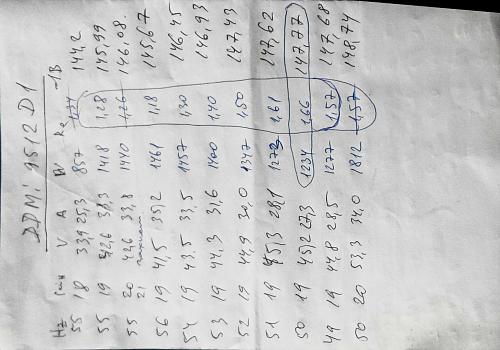 DDMi 9512 D1
Hz V A W -1B
55 18 33,9 25,3 857 144,2
55 19 42,6 33,3 1418 1,28 145,99
55 20 42,6 33,8 1440 1,26 146,08.
21
56 19 41,5 35,2 1461 1,18 145,67
54 19 43,5 33,5 1457 1,30 146,45
53 19 44,3 31,6 1400 1,40 146,93
52 19 44,9 30,0 1347 1,50 147,43
51 19 45,3 28,1 1273 1,61 147,62
50 19 45,2 27,3 1234 1,66 147,77
49 19 44,8 28,5 1277 1,57 147,68
50 20 53,3 34,0 1812 1,57 148,74